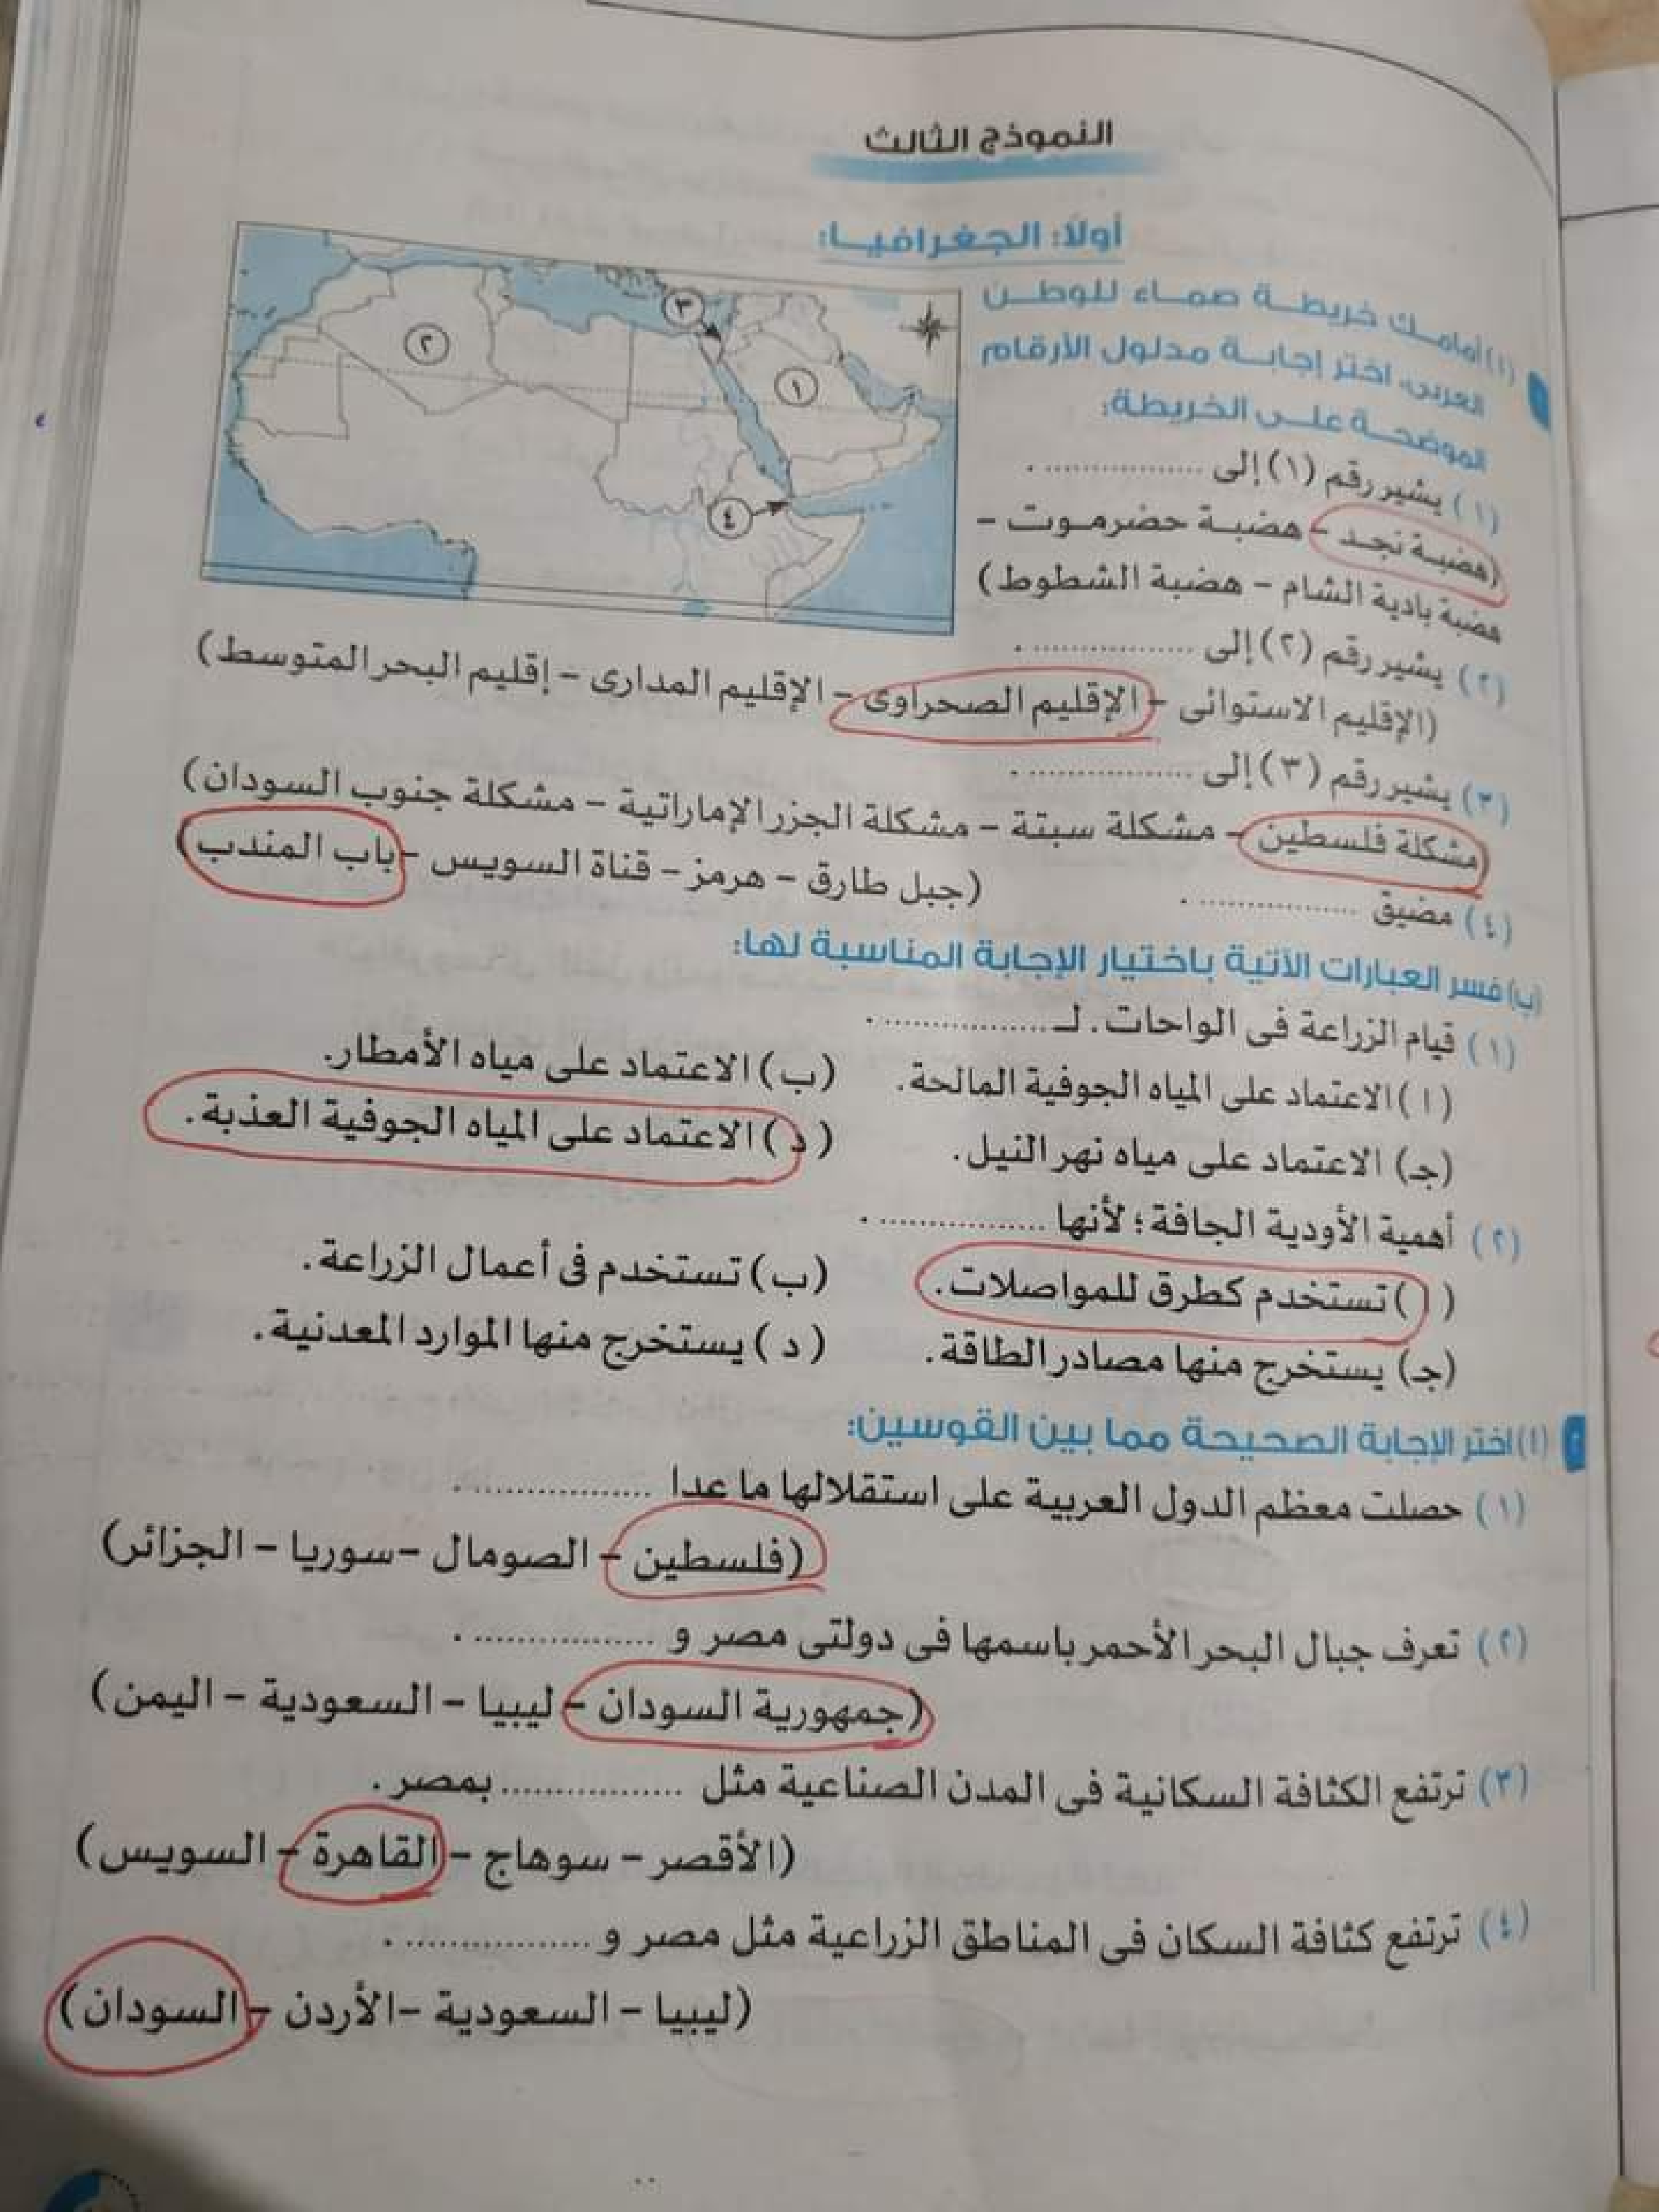 النموذج الثالث
أولاً: الجغرافيا:
(ا) أمامك خريطة صماء للوطن
العربى، اختر إجابة مدلول الأرقام
الموضحة على الخريطة:
٣
٢
١
٤
(١) يشير رقم (١) إلى .................. .
(هضبة نجد - هضبة حضرموت -
هضبة بادية الشام - هضبة الشطوط)
(٢) يشير رقم (٢) إلى .................. .
(الإقليم الاستوائى - الإقليم الصحراوى - الإقليم المدارى - إقليم البحر المتوسط)
(٣) يشير رقم (٣) إلى .................. .
(مشكلة فلسطين - مشكلة سبتة - مشكلة الجزر الإماراتية - مشكلة جنوب السودان)
(٤) مضيق .................. . (جبل طارق - هرمز - قناة السويس - باب المندب)
(ب) فسر العبارات الآتية باختيار الإجابة المناسبة لها:
(١) قيام الزراعة فى الواحات. لـ .................. .
(ا) الاعتماد على المياه الجوفية المالحة. (ب) الاعتماد على مياه الأمطار.
(جـ) الاعتماد على مياه نهر النيل. (د) الاعتماد على المياه الجوفية العذبة.
(٢) أهمية الأودية الجافة؛ لأنها .................. .
(ا) تستخدم كطرق للمواصلات. (ب) تستخدم فى أعمال الزراعة.
(جـ) يستخرج منها مصادر الطاقة. (د) يستخرج منها الموارد المعدنية.
٢ (ا) اختر الإجابة الصحيحة مما بين القوسين:
(١) حصلت معظم الدول العربية على استقلالها ما عدا .................. .
(فلسطين - الصومال - سوريا - الجزائر)
(٢) تعرف جبال البحر الأحمر باسمها فى دولتى مصر و .................. .
(جمهورية السودان - ليبيا - السعودية - اليمن)
(٣) ترتفع الكثافة السكانية فى المدن الصناعية مثل .................. بمصر.
(الأقصر - سوهاج - القاهرة - السويس)
(٤) ترتفع كثافة السكان فى المناطق الزراعية مثل مصر و .................. .
(ليبيا - السعودية - الأردن - السودان)